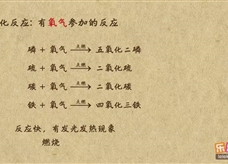 化反应：有氧气参加的反应
磷 + 氧气 点燃 五氧化二磷
硫 + 氧气 点燃 二氧化硫
碳 + 氧气 点燃 二氧化碳
铁 + 氧气 点燃 四氧化三铁
反应快，有发光发热现象
燃烧